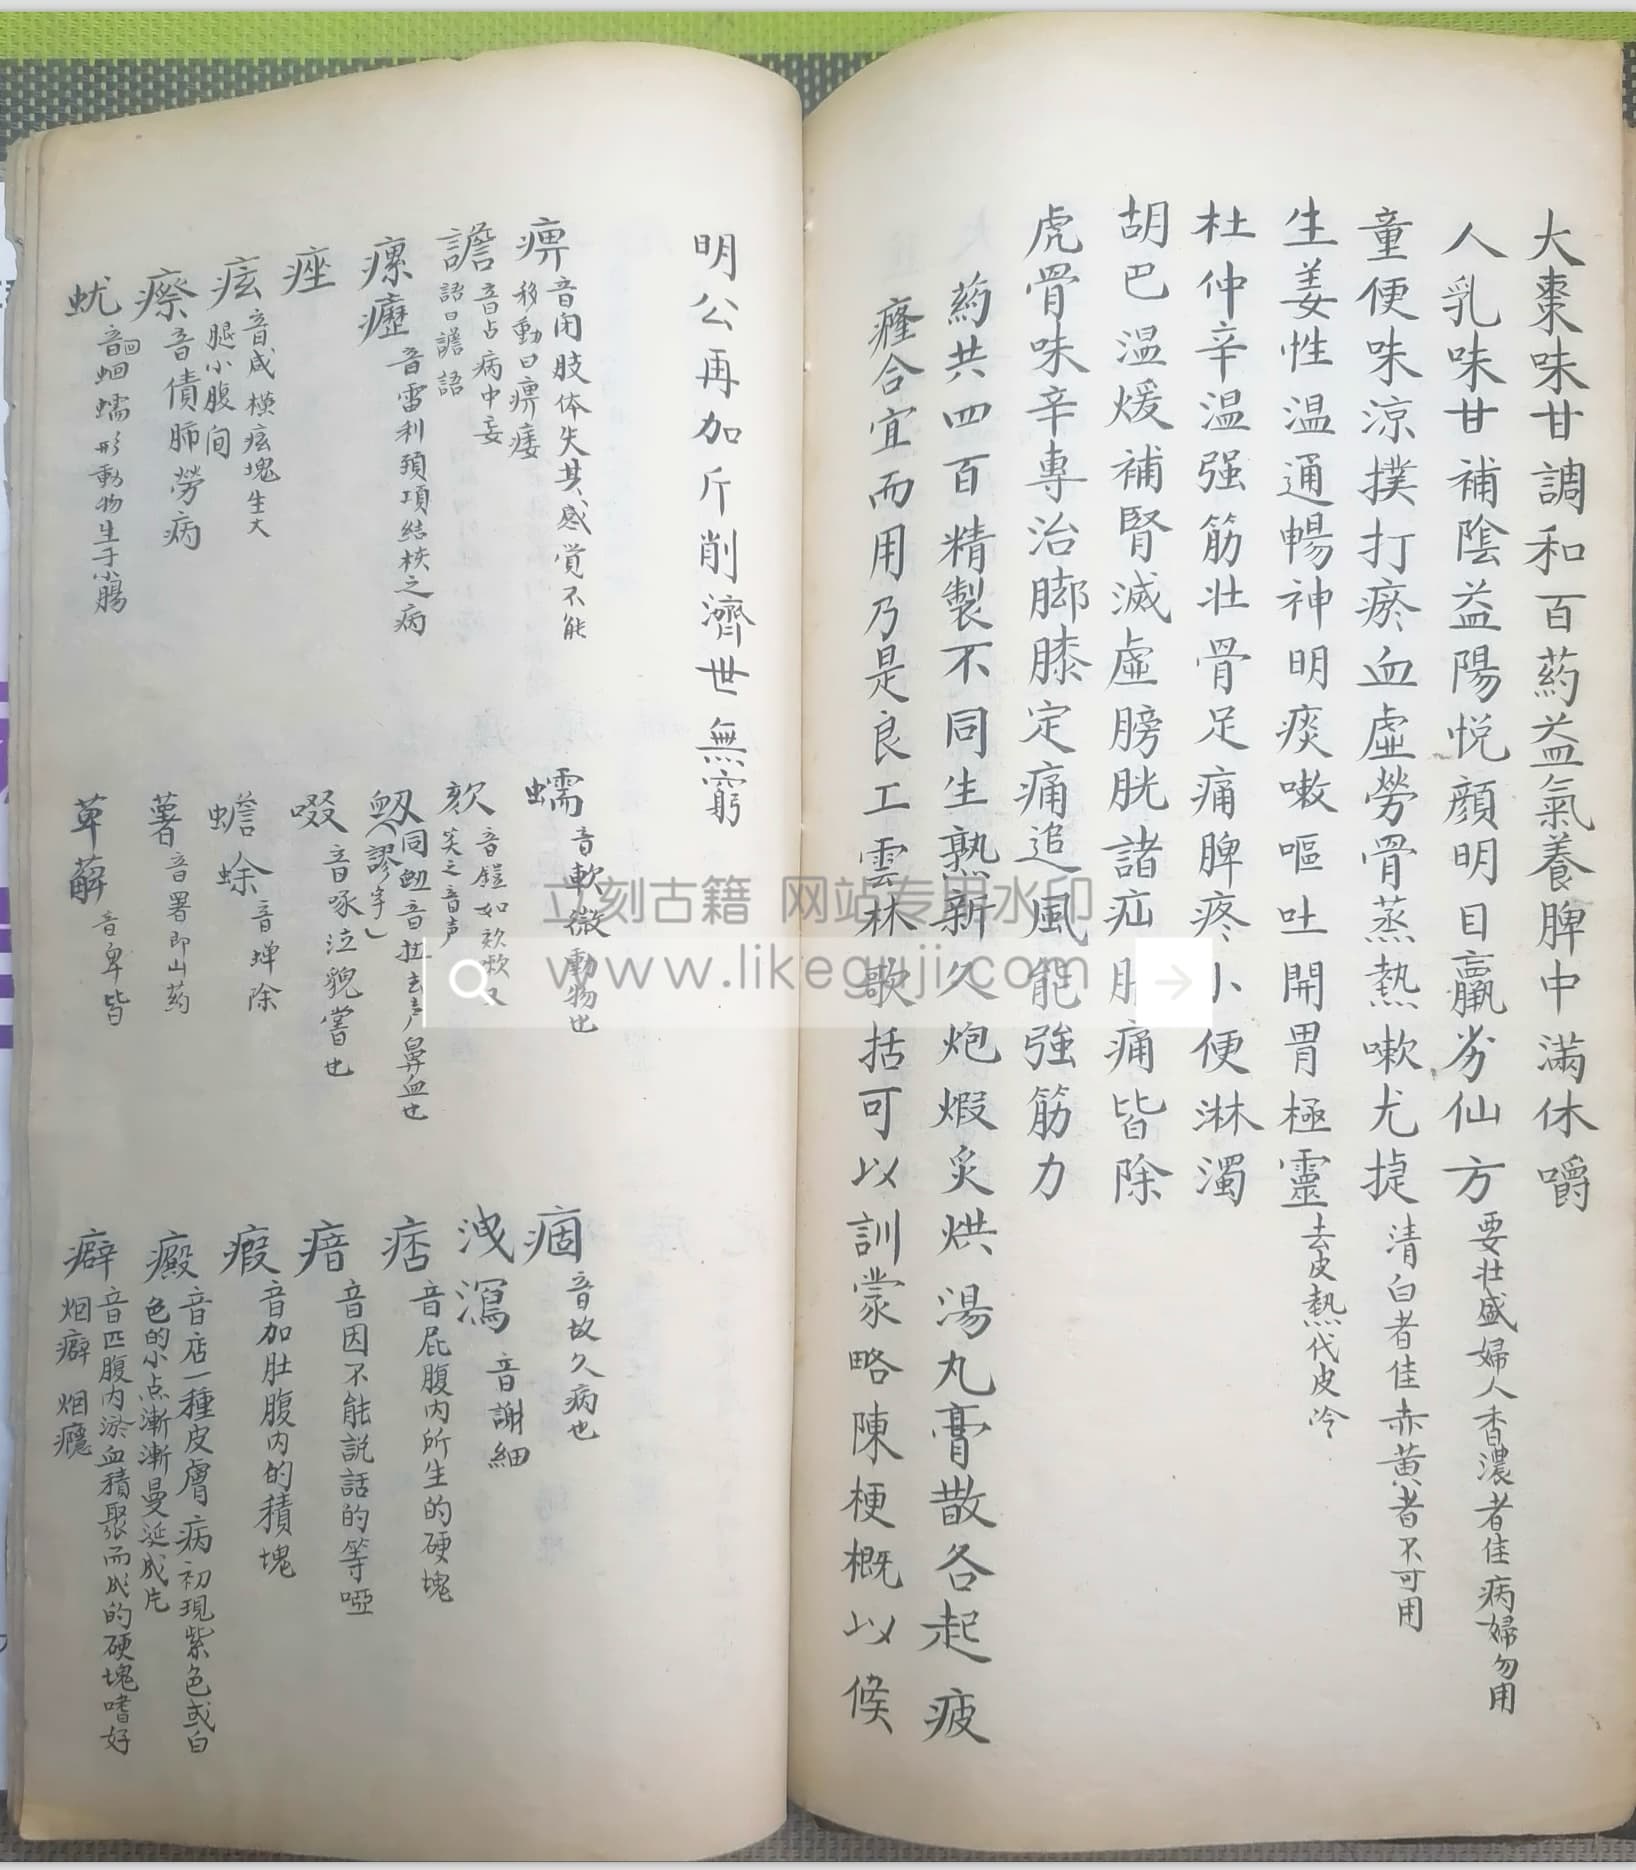 大棗味甘調和百葯益氣養脾中滿休嚼
人乳味甘補陰益陽悦顏明目羸劣仙方
要壮盛婦人香濃者佳病婦勿用
童便味涼撲打瘀血虛勞骨蒸熱嗽尤捷
清白者佳赤黄者不可用
生姜性温通暢神明痰嗽嘔吐開胃極靈
去皮熱代皮冷
杜仲辛温强筋壮骨足痛脾疼小便淋濁
胡巴温煖補腎滅虛膀胱諸疝 痛皆除
虎骨味辛專治脚膝定痛追風能強筋力
葯共四百精製不同生熟新久炮煅炙烘湯丸膏散各起疲
癃合宜而用乃是良工雲林歌括可以訓蒙略陳梗概以候
明公再加斤削濟世無窮
痹
音闭肢体失其感觉不能
移動曰痹痿
譫
音占病中妄
語曰譫語
瘰癧
音雷利頚項結核之病
痤
痃
音咸横痃塊生大
腿小腹间
瘵
音債肺勞病
蚘
音回蛔蠕形動物生于小腸
蠕
音軟微動物也
欬
音鎧如欬欬
笑之音声
同衂音 去声鼻血也
(謬字)
啜
音啄泣貌嘗也
蟾蜍
音蝉除
薯
音署即山葯
萆薢
音卑皆
痼
音故久病也
洩瀉
音謝細
痞
音屁腹内所生的硬塊
瘖
音因不能説話的等啞
瘕
音加肚腹内的積塊
癜
音店一種皮膚病初現紫色或白
色的小点漸漸曼延成片
癖
音匹腹内淤血積聚而成的硬塊嗜好
烟癖 烟癮
立刻古籍 网站专用水印
www.likeguji.com